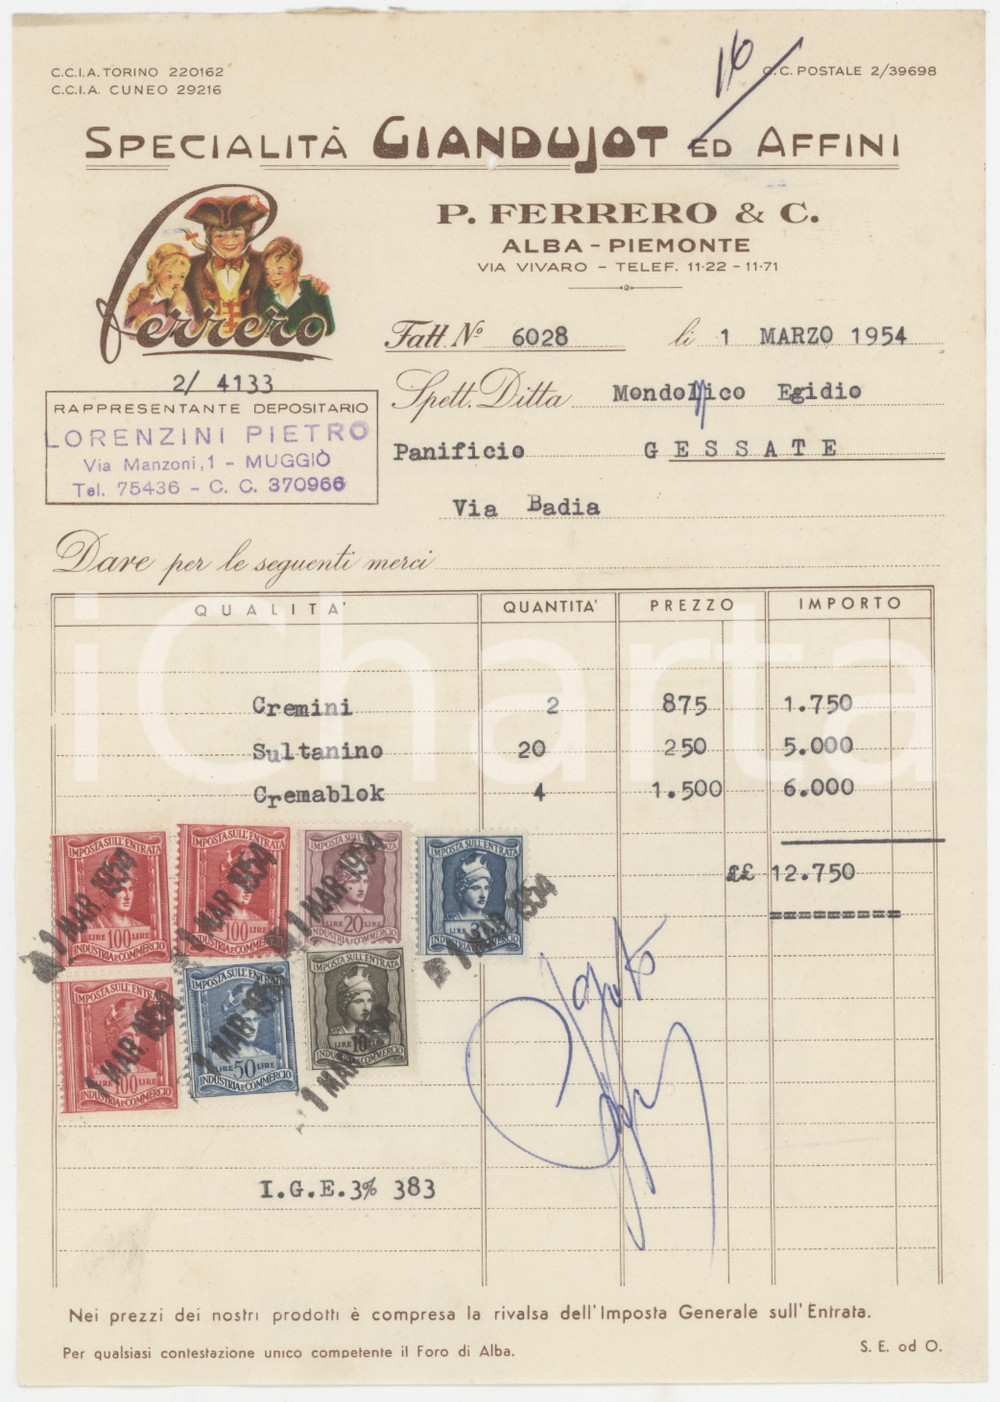 16
C.C.I.A. TORINO 220162
C.C.I.A. CUNEO 29216
C.C. POSTALE 2/39698
SPECIALITÀ GIANDUJOT ED AFFINI
Ferrero
P. FERRERO & C.
ALBA - PIEMONTE
VIA VIVARO - TELEF. 11-22 - 11-71
Fatt. Nº 6028 li 1 MARZO 1954
2/ 4133
RAPPRESENTANTE DEPOSITARIO
LORENZINI PIETRO
Via Manzoni, 1 - MUGGIÒ
Tel. 75436 - C. C. 370966
Spett. Ditta Mondonico Egidio
Panificio GESSATE
Via Badia
Dare per le seguenti merci
QUALITA' QUANTITA' PREZZO IMPORTO
Cremini 2 875 1.750
Sultanino 20 250 5.000
Cremablok 4 1.500 6.000
££ 12.750
=========
IMPOSTA SULL'ENTRATA LIRE 100 LIRE INDUSTRIA E COMMERCIO 1 MAR. 1954
IMPOSTA SULL'ENTRATA LIRE 100 LIRE INDUSTRIA E COMMERCIO 1 MAR. 1954
IMPOSTA SULL'ENTRATA LIRE 20 LIRE INDUSTRIA E COMMERCIO 1 MAR. 1954
IMPOSTA SULL'ENTRATA LIRE 3 INDUSTRIA E COMMERCIO 1 MAR. 1954
IMPOSTA SULL'ENTRATA LIRE 100 LIRE INDUSTRIA E COMMERCIO 1 MAR. 1954
IMPOSTA SULL'ENTRATA LIRE 50 LIRE INDUSTRIA E COMMERCIO 1 MAR. 1954
IMPOSTA SULL'ENTRATA LIRE 10 INDUSTRIA E COMMERCIO 1 MAR.
I.G.E.3% 383
Nei prezzi dei nostri prodotti è compresa la rivalsa dell'Imposta Generale sull'Entrata.
Per qualsiasi contestazione unico competente il Foro di Alba.
S. E. od O.
iCharta